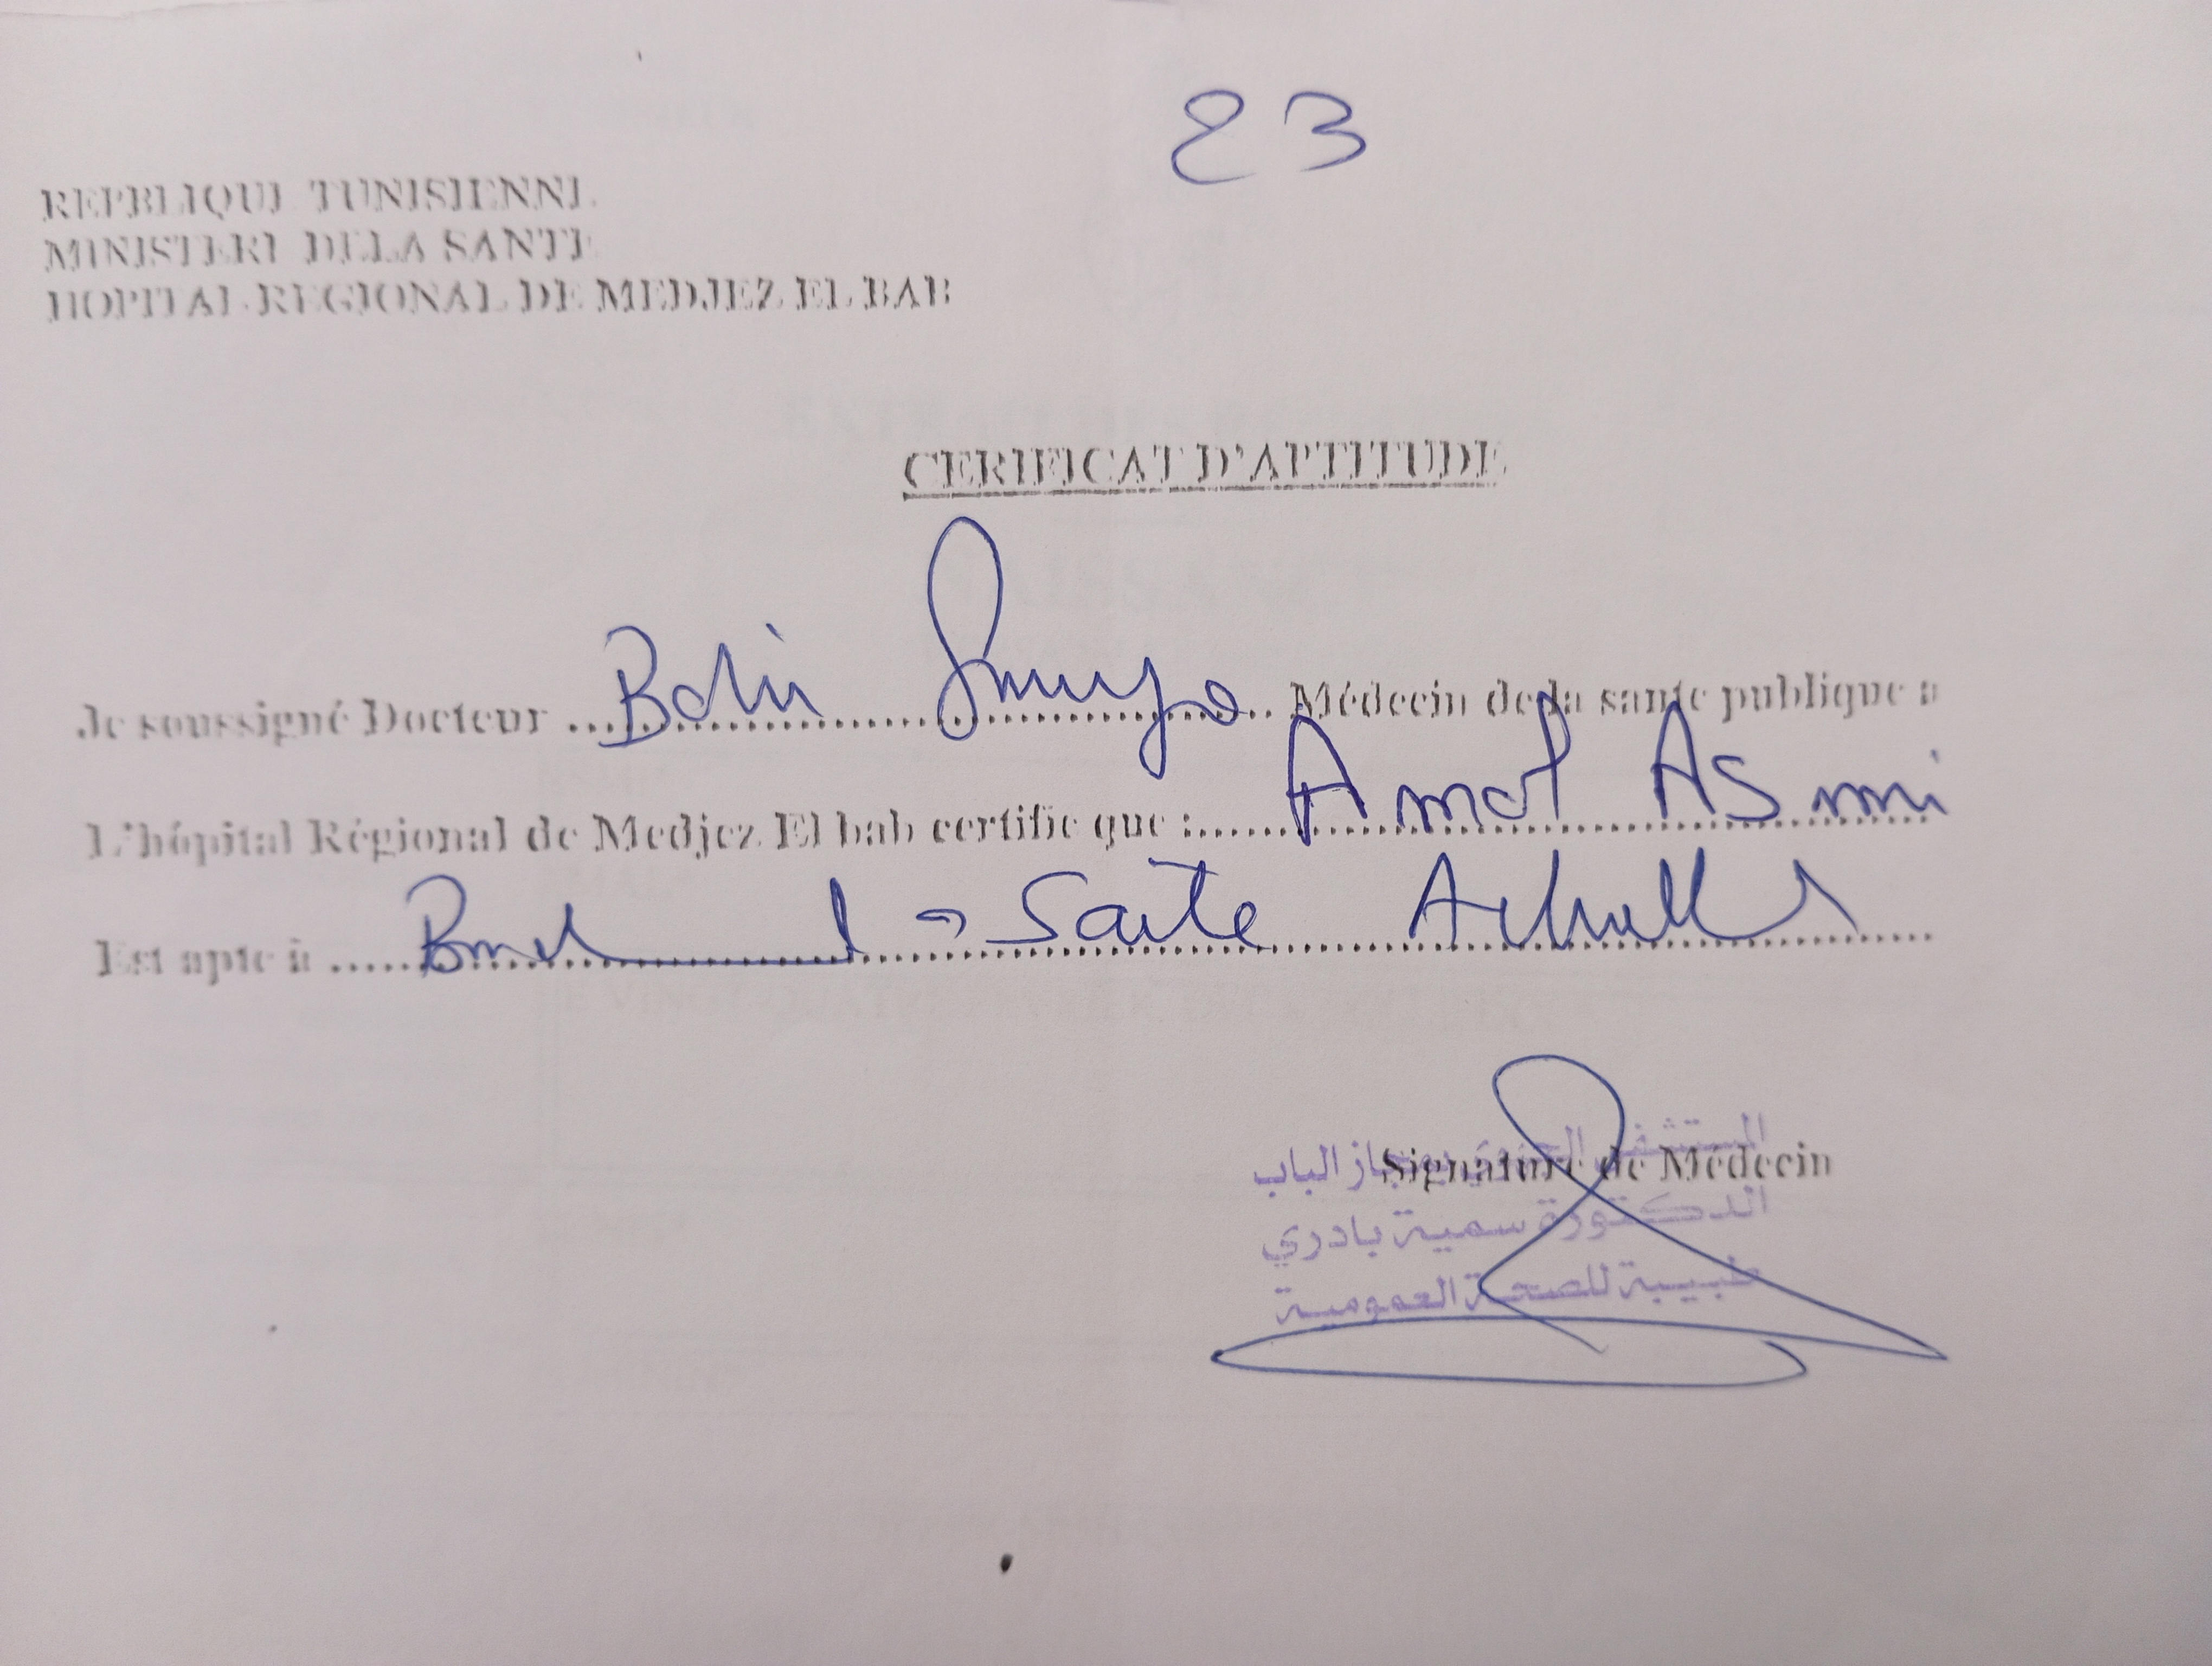 23
REPBLIQUE TUNISIENNE
MINISTERE DELA SANTE
HOPITAL REGIONAL DE MEDJEZ EL BAB
CERIFICAT D'APTITUDE
Je soussigné Docteur ............ Médecin de la sante publique a
L'hôpital Régional de Medjez El bab certifie que :...... Amol Asmi
Est apte à ...... Sante Actuelle
Signature de Médecin
المستشفى الجهوي بمجاز الباب
الدكتورة سمية بادري
طبيبة للصحة العمومية